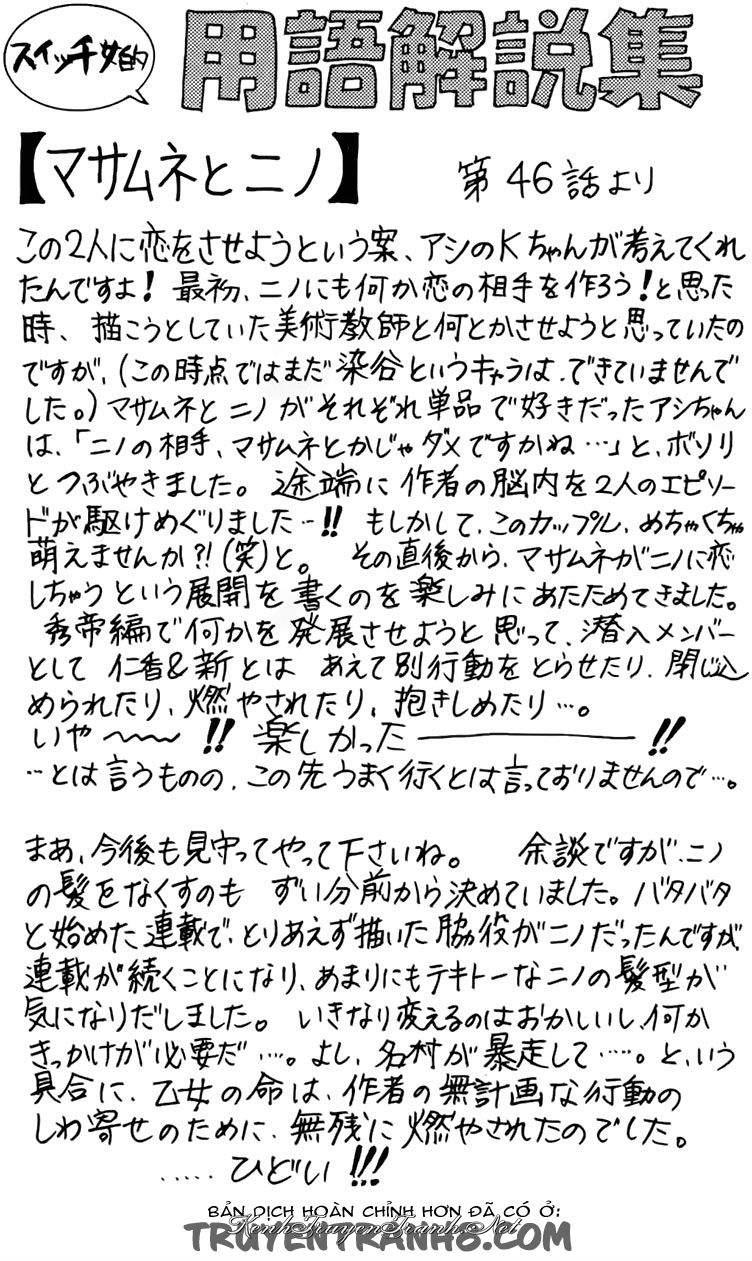 スイッチ女的
用語解説集
【マサムネとニノ】 第46話より
この2人に恋をさせようという案、アシのKちゃんが考えてくれ
たんですよ！最初、ニノにも何か恋の相手を作ろう！と思った
時、描こうとしていた美術教師と何とかさせようと思っていたの
ですが、（この時点ではまだ染谷というキャラは、できていませんで
した。）マサムネとニノがそれぞれ単品で好きだったアシちゃん
は、「ニノの相手、マサムネとかじゃダメですかね…」と、ボソリ
とつぶやきました。途端に作者の脳内を2人のエピソー
ドが駆けめぐりました…!! もしかして、このカップル、めちゃくちゃ
萌えませんか?!（笑）と。その直後から、マサムネがニノに恋
しちゃうという展開を書くのを楽しみにあたためてきました。
秀帝編で何かを発展させようと思って、潜入メンバー
として仁香&新とはあえて別行動をとらせたり、閉じ込
められたり、燃やされたり、抱きしめたり…。
いや〜〜!! 楽しかった――!!
…とは言うものの、この先うまく行くとは言っておりませんので…。
まあ、今後も見守ってやって下さいね。余談ですが、ニノ
の髪をなくすのもずい分前から決めていました。バタバタ
と始めた連載で、とりあえず描いた脇役がニノだったんですが、
連載が続くことになり、あまりにもテキトーなニノの髪型が
気になりだしました。いきなり変えるのはおかしいし、何か
きっかけが必要だ…。よし、名村が暴走して……。と、いう
具合に、乙女の命は、作者の無計画な行動の
しわ寄せのために、無残に燃やされたのでした。
……ひどい!!!
BẢN DỊCH HOÀN CHỈNH HƠN ĐÃ CÓ Ở:
KenhTruyenTranh.Net
TRUYENTRANH8.COM